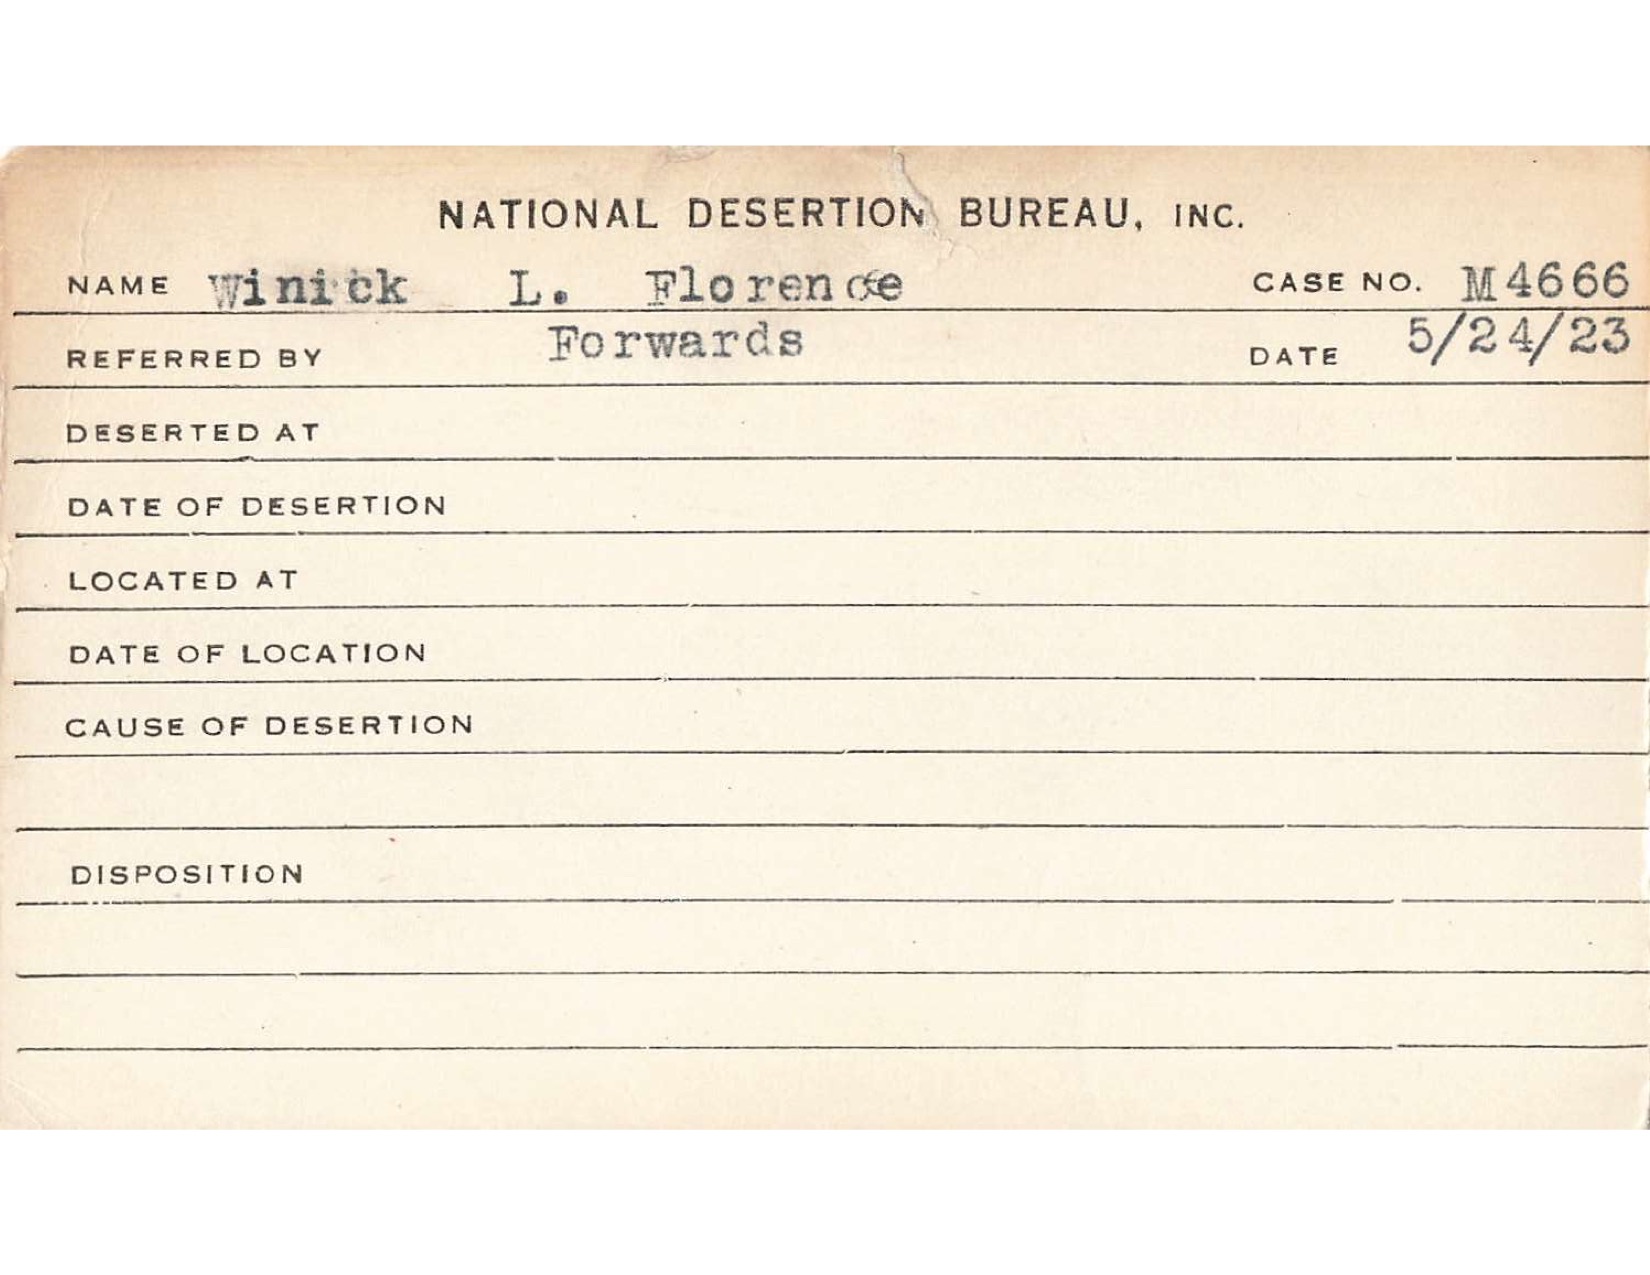 NATIONAL DESERTION BUREAU, INC.
NAME Winick L. Florence CASE NO. M4666
REFERRED BY Forwards DATE 5/24/23
DESERTED AT
DATE OF DESERTION
LOCATED AT
DATE OF LOCATION
CAUSE OF DESERTION
DISPOSITION